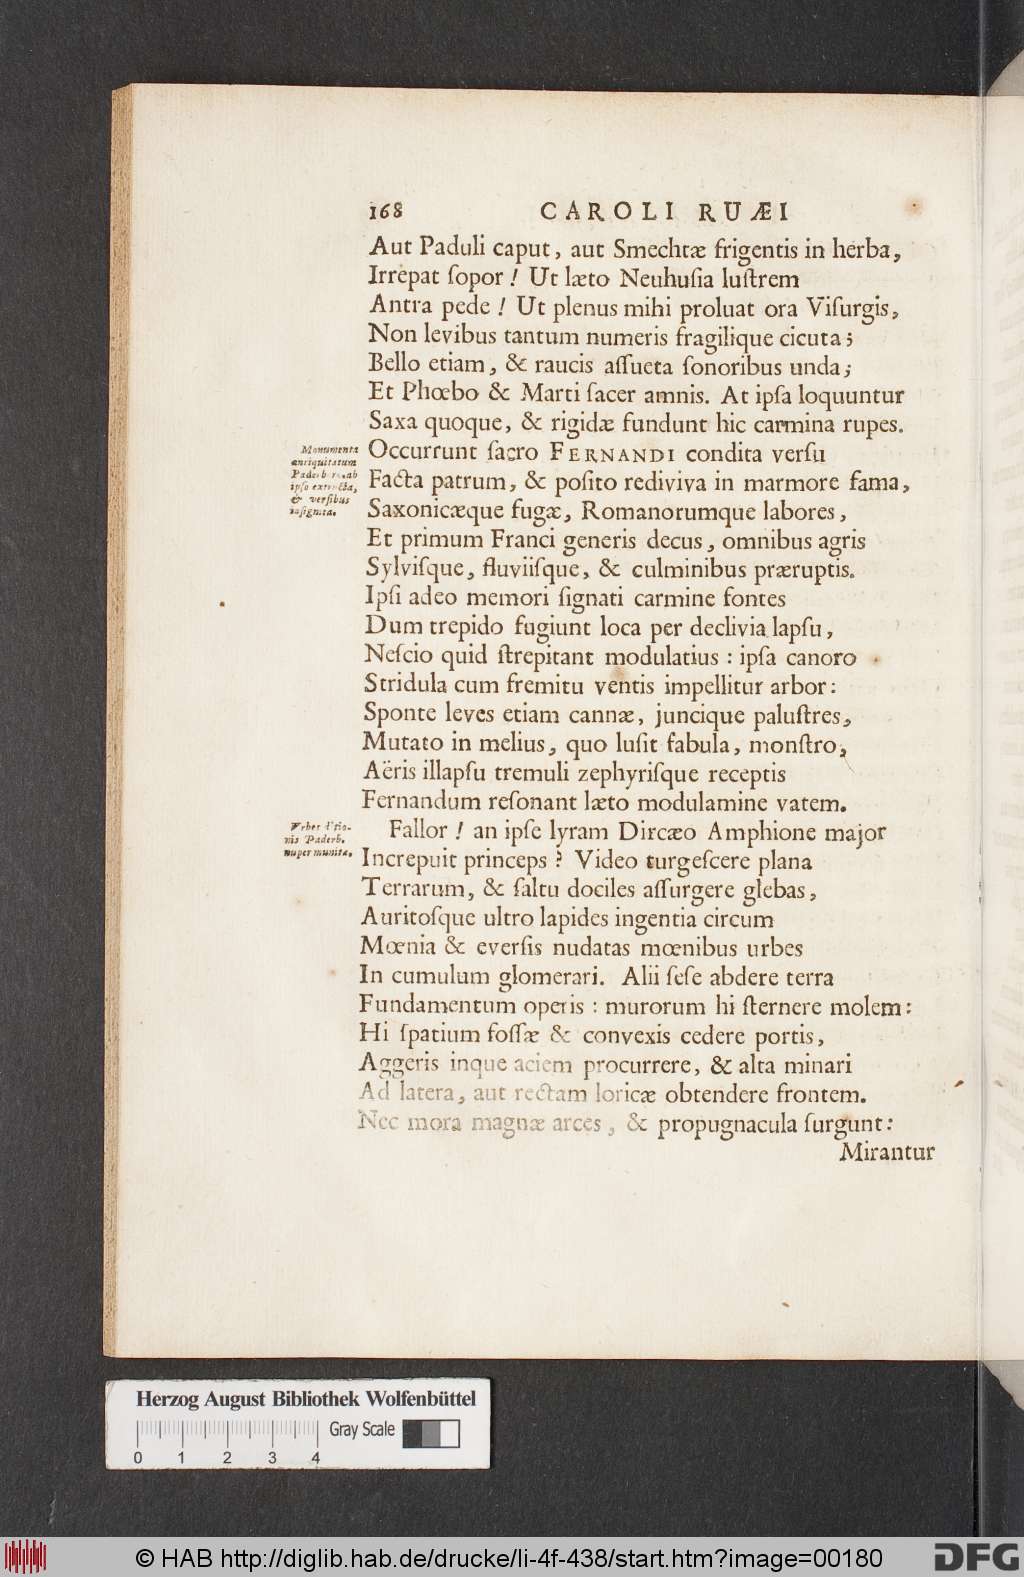 168 CAROLI RUÆI
Aut Paduli caput, aut Smechtæ frigentis in herba,
Irrepat ſopor! Ut læto Neuhuſia luſtrem
Antra pede! Ut plenus mihi proluat ora Viſurgis,
Non levibus tantum numeris fragilique cicuta;
Bello etiam, & raucis aſſueta ſonoribus unda;
Et Phœbo & Marti ſacer amnis. At ipſa loquuntur
Saxa quoque, & rigidæ fundunt hic carmina rupes.
Monumenta
antiquitatum
Paderb
ipſo
& verſibus
Occurrunt ſacro FERNANDI condita verſu
Facta patrum, & poſito rediviva in marmore fama,
Saxonicæque fugæ, Romanorumque labores,
Et primum Franci generis decus, omnibus agris
Sylviſque, fluviiſque, & culminibus præruptis.
Ipſi adeo memori ſignati carmine fontes
Dum trepido fugiunt loca per declivia lapſu,
Neſcio quid ſtrepitant modulatius : ipſa canoro
Stridula cum fremitu ventis impellitur arbor:
Sponte leves etiam cannæ, juncique paluſtres,
Mutato in melius, quo luſit fabula, monſtro,
Aëris illapſu tremuli zephyriſque receptis
Fernandum reſonant læto modulamine vatem.
Paderb.
nuper munitæ.
Fallor! an ipſe lyram Dircæo Amphione major
Increpuit princeps? Video turgeſcere plana
Terrarum, & ſaltu dociles aſſurgere glebas,
Auritoſque ultro lapides ingentia circum
Mœnia & everſis nudatas mœnibus urbes
In cumulum glomerari. Alii ſeſe abdere terra
Fundamentum operis : murorum hi ſternere molem:
Hi ſpatium foſſæ & convexis cedere portis,
Aggeris inque aciem procurrere, & alta minari
Ad latera, aut rectam loricæ obtendere frontem.
Nec mora magnæ arces, & propugnacula ſurgunt:
Mirantur
Herzog August Bibliothek Wolfenbüttel
Gray Scale
0 1 2 3 4
© HAB http://diglib.hab.de/drucke/li-4f-438/start.htm?image=00180
DFG